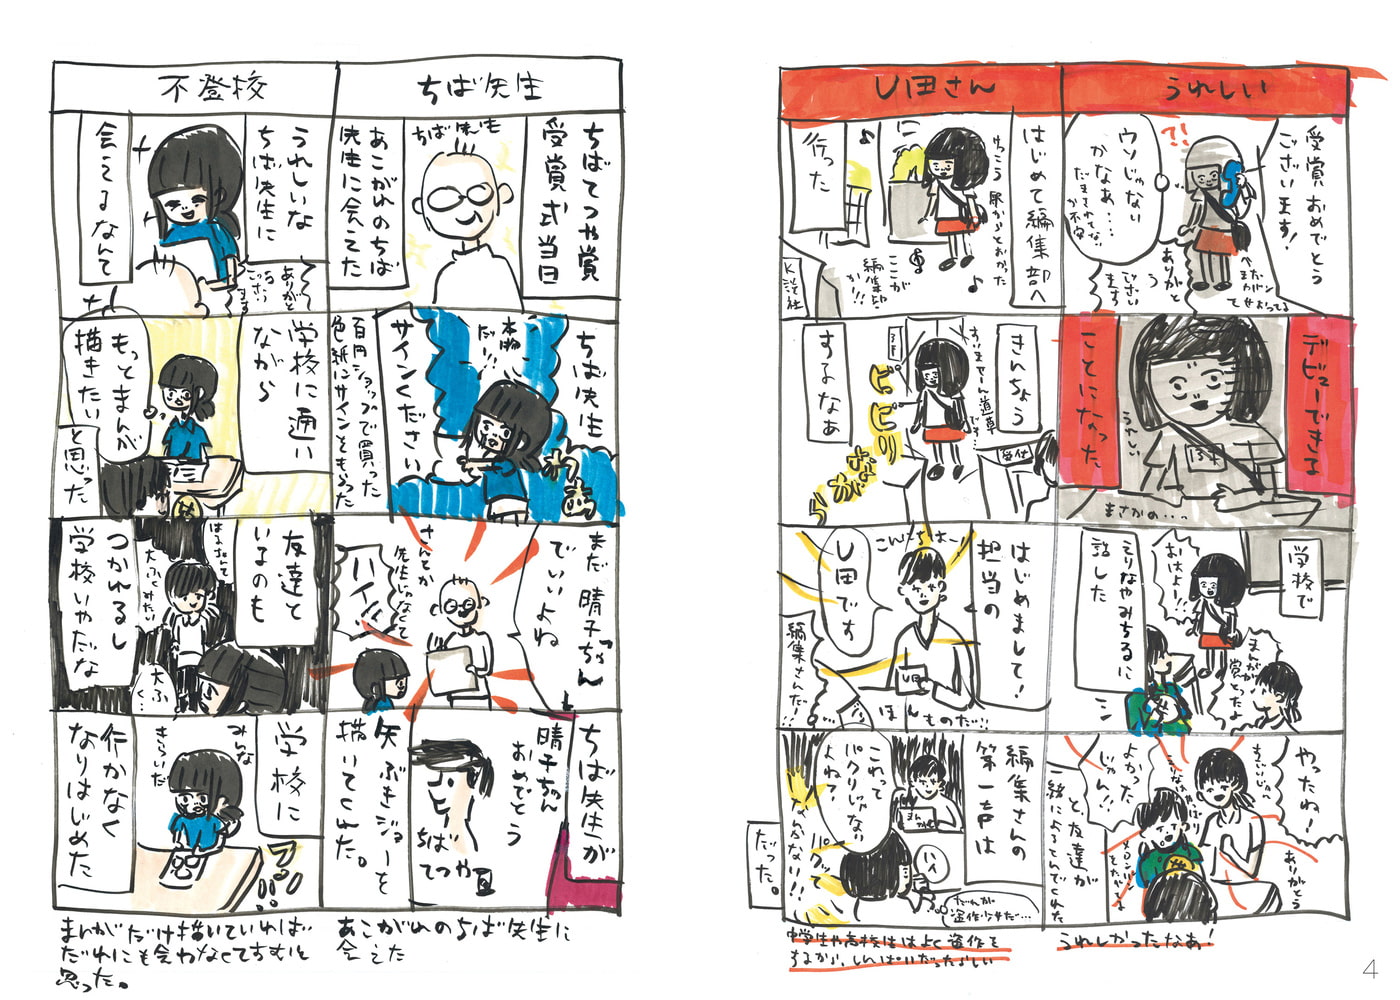 うれしい
受賞おめでとう
ございます!
ウソじゃない
かなぁ…
だまされてないか不安
ありがとう
ございます
デビューできる
ことになった
うれしい
まさかの…
学校で
おはよー!!
まんが
賞とったよ
えりなやみちるに
話した
やったね!
すごいじゃん
ありがとう
よかった
じゃん!!
と、友達が
一緒によろこんでくれた
うれしかったなあ!
U田さん
はじめて編集部へ
けっこう駅からとおかった
に
行った
ここが
編集部
か!!!
K談社
きんちょう
するなぁ
すいませーん道草
です…
受付
ピピリ
はじめまして!
担当の
こんにちはー!
U田です
編集さんだ!!
ほんものだ!!
編集さんの
第一声は
これって
パクリじゃない
よね?
まんが
ハイ
なんかない!!
パクって
だれが
盗作少女だ…
だった。
中学生や高校生はよく盗作を
するから、しんぱいだったらしい
ちば先生
ちばてつや賞
受賞式当日
ちば先生
あこがれのちば
先生に会えた
ちば先生
サインください
本物
だ!!!
百円ショップで買った
色紙にサインをもらった
まだ晴子ちゃん
でいいよね
さんとか
先生じゃなくて
ハイ!!
ちば先生が
晴子ちゃん
おめでとう
ちば
てつや
矢ぶきジョーを
描いてくれた。
あこがれのちば先生に
会えた
不登校
うれしいな
ちば先生に
会えるなんて
ありがとう
ございます
学校に通い
ながら
もっとまんが
描きたい
と思った
友達と
いるのも
はるこちゃんて
大ふみたい
大ふ
く…
つかれるし
学校いやだな
学校に
みんな
きらいだ
行かなく
なりはじめた
まんがだけ描いていれば
だれにも会わなくてすむと
思った。
4